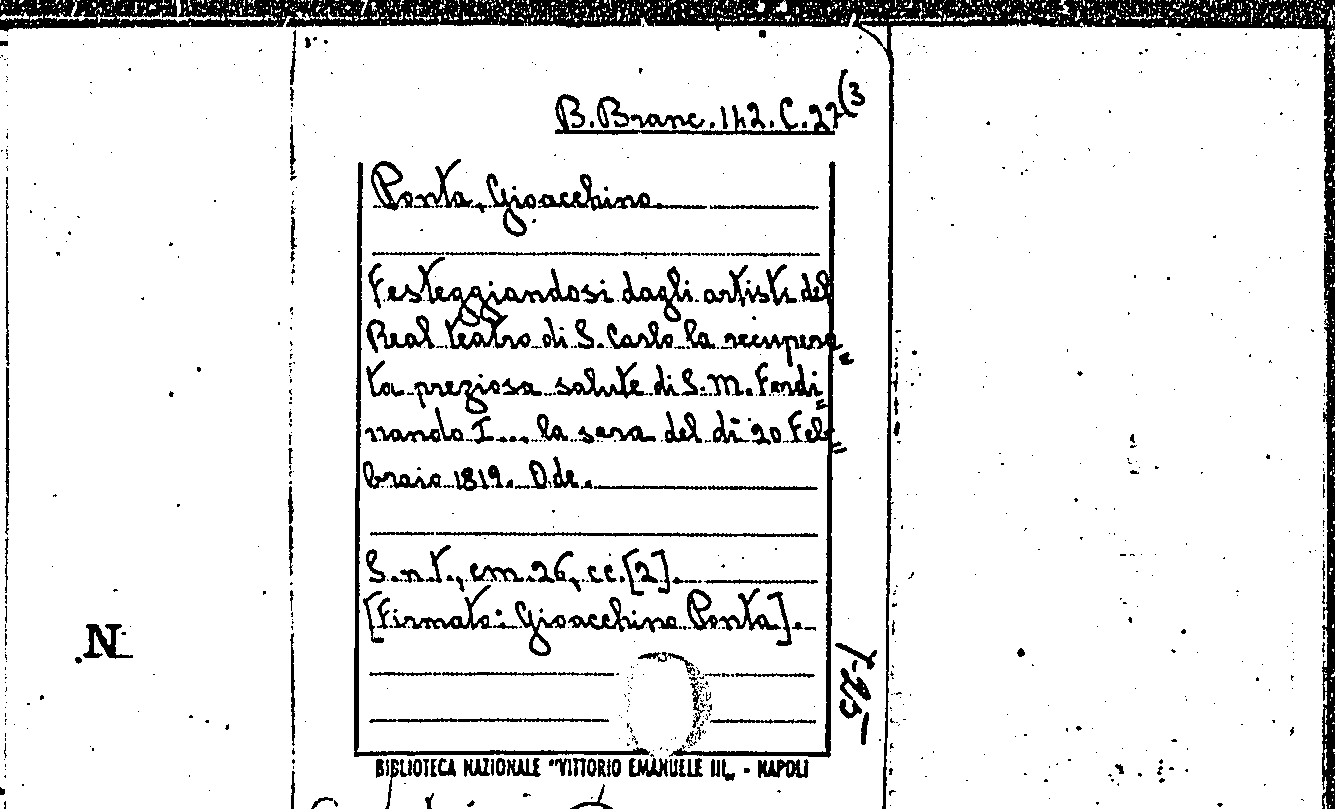 B. Branc. 142. C. 27(3
Ponta, Gioacchino.
Festeggiandosi dagli artisti del
Real teatro di S. Carlo la recupera„
ta preziosa salute di S. M. Ferdi„
nando I... la sera del dì 20 Feb„
braio 1819. Ode.
S.n.t., cm. 26, cc. [2].
[Firmato: Gioacchino Ponta].
N
BIBLIOTECA NAZIONALE "VITTORIO EMANUELE III„ - NAPOLI